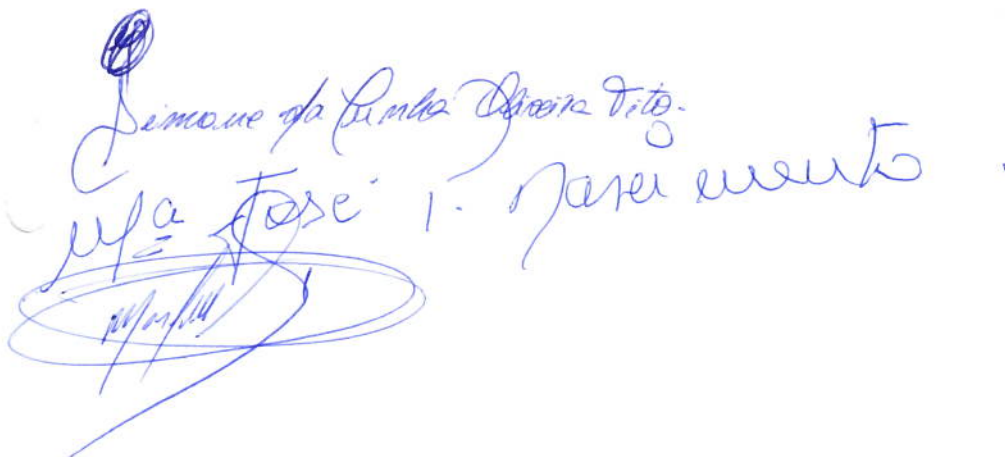 Simone da Cunha Oliveira Vito.
Mª José T. Nascimento.